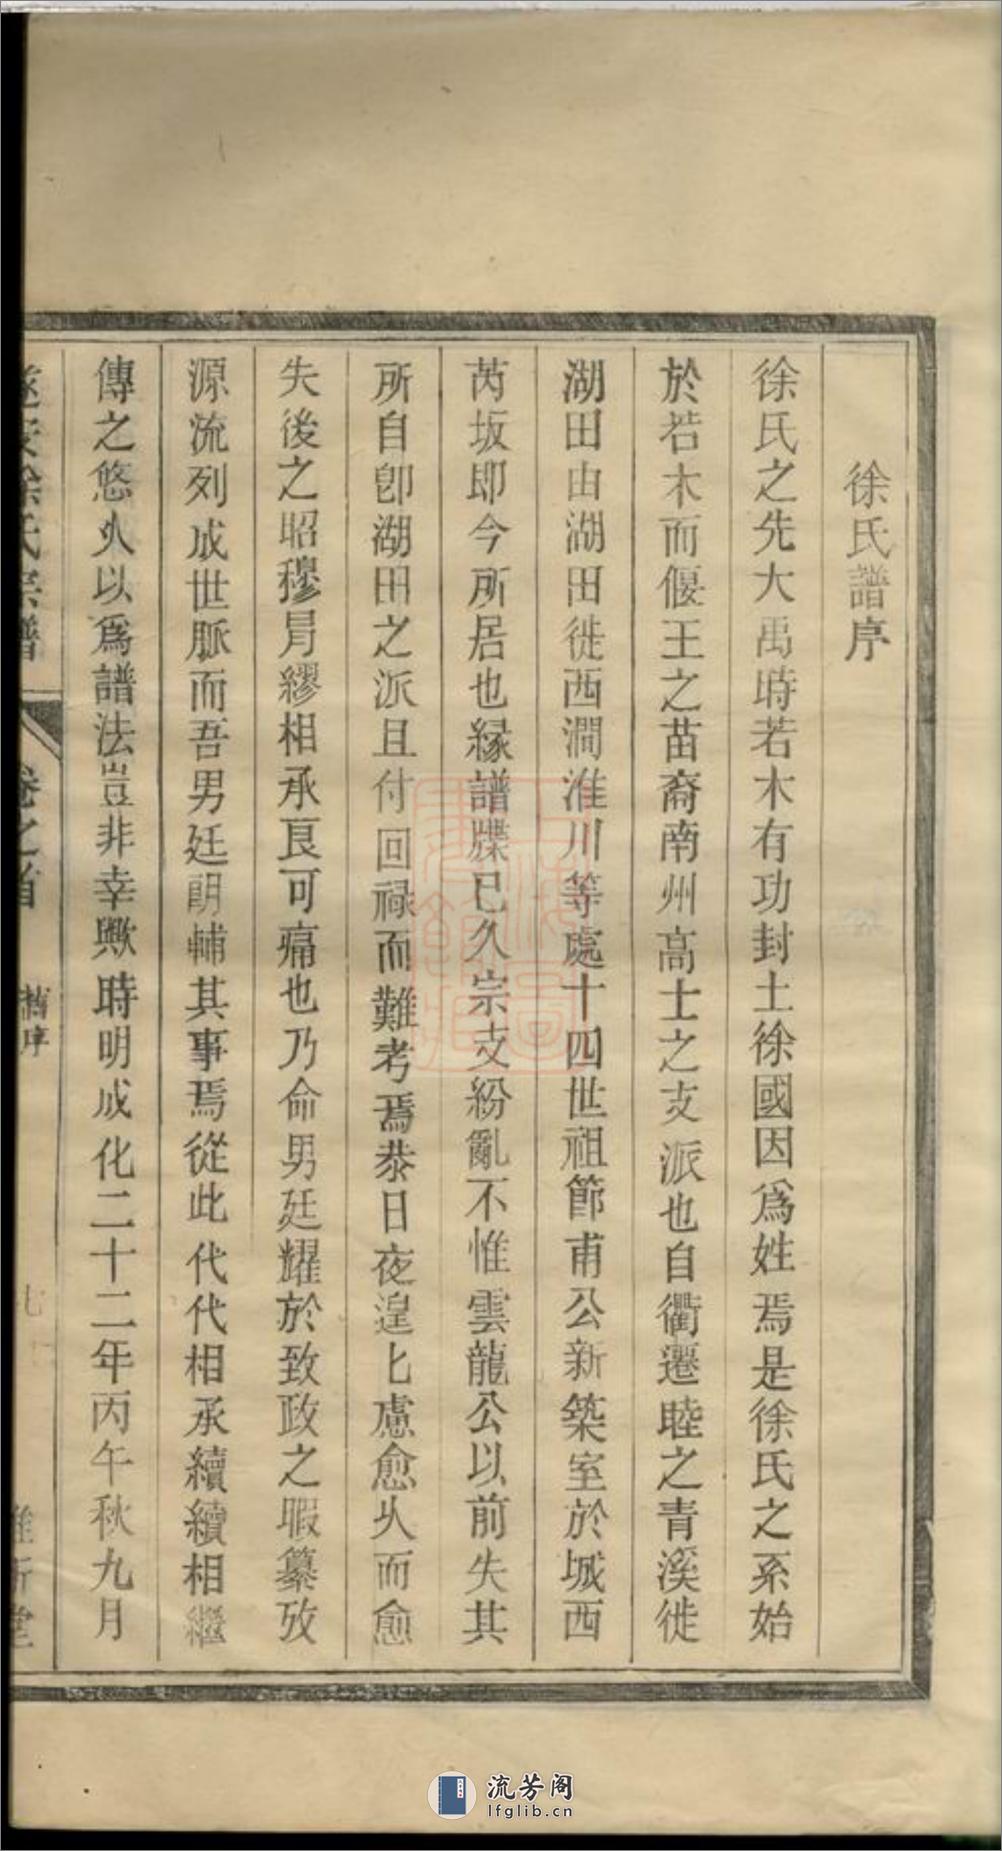 徐氏譜序
徐氏之先大禹時若木有功封土徐國因爲姓焉是徐氏之系始
於若木而偃王之苗裔南州高士之支派也自衢遷睦之青溪徙
湖田由湖田徙西澗淮川等處十四世祖節甫公新築室於城西
芮坂即今所居也緣譜牒已久宗支紛亂不惟雲龍公以前失其
所自卽湖田之派且付回祿而難考焉恭日夜遑匕慮愈乆而愈
失後之昭穆冐繆相承艮可痛也乃命男廷耀於致政之暇纂攷
源流列成世脈而吾男廷朗輔其事焉從此代代相承續續相繼
傳之悠乆以爲譜法豈非幸歟時明成化二十二年丙午秋九月
遂安徐氏宗譜
卷之首
舊序
七
維新堂
流芳阁
lfglib.cn